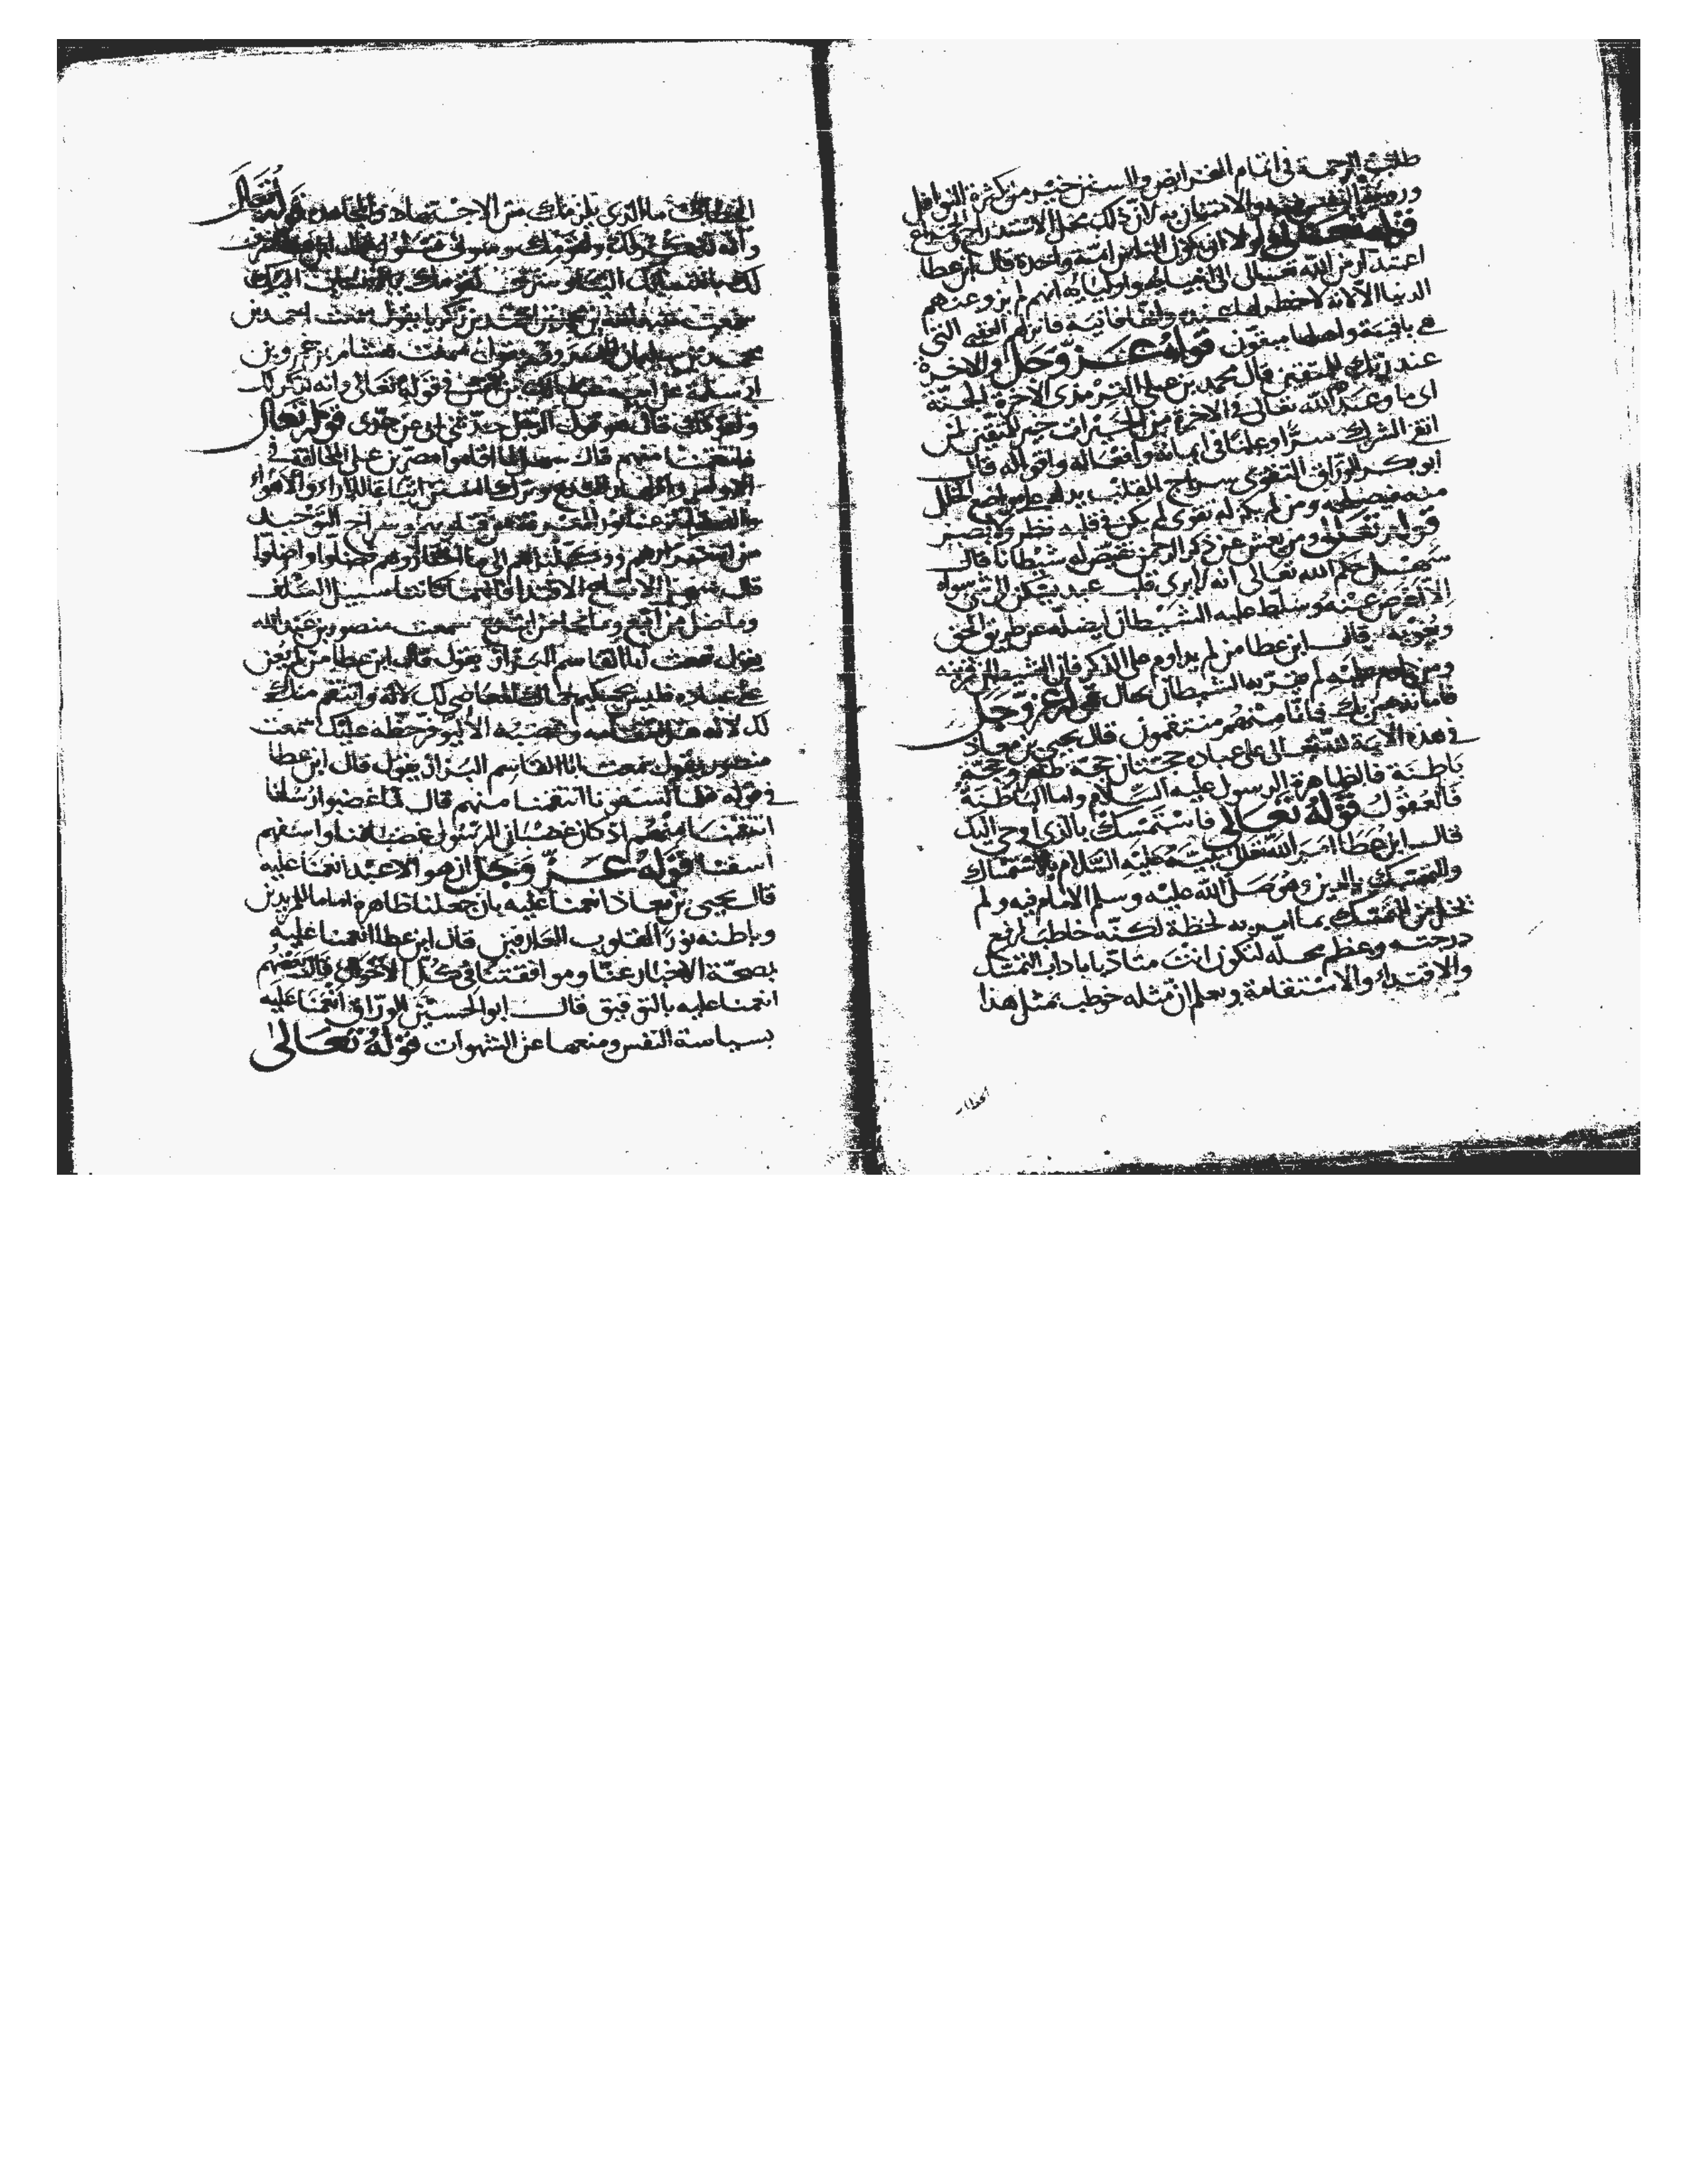 طلب الرحمة في اتمام الفرايض والسنن خير من كثرة النوافل
ورؤية النفس فيه والامتنان به لان ذلك محل الاستدراج
قوله تعالى ولولا ان يكون الناس امة واحدة قال ابن عطا
اعتذار من الله تعالى الى انبيائه واوليائه انهم لم يزو عنهم
الدنيا الا لانه لا خطر لها عنده وانها فانية فاثر لهم العقبى التي
هي باقية واهلها مبقون قوله عز وجل والاخرة
عند ربك للمتقين قال محمد بن علي الترمذي الاخرة الجنة
اي ما وعد الله تعالى في الاخرة من الخيرات خير للمتقين لمن
اتقى الشرك سرا وعلنا في ايمانه وافعاله واقواله قال
ابو بكر الوراق التقوى سراج القلب يدله على مواضع الخلل
منه فيصلحه ومن لم يكن له تقوى لم يكن في قلبه نظر ولا بصر
قوله تعالى ومن يعش عن ذكر الرحمن نقيض له شيطانا قال
سهل حكم الله تعالى انه لا يرى قلب عبد يسكن الى شيء سواه
الا اعرض عنه وسلط عليه الشيطان ليضله عن طريق الحق
ويغويه قال ابن عطا من لم يداوم على الذكر فان الشيطان قرينه
ومن داوم عليه لم يقربه الشيطان بحال قوله عز وجل
فاما نذهبن بك فانا منهم منتقمون قال يحيى بن معاذ
في هذه الاية لله تعالى على عباده حجتان حجة ظاهرة وحجة
باطنة فالظاهرة الرسول عليه السلام واما الباطنة
فالعقول قوله تعالى فاستمسك بالذي اوحي اليك
قال ابن عطا امر الله تعالى نبيه عليه السلام بالاستمساك
والتمسك بالدين وهو صلى الله عليه وسلم الامام فيه ولم
يخل من التمسك بما امر به لحظة لكنه خاطب لرفيع
درجته وعظم محله لتكون انت متادبا باداب التمسك
والاقتداء والاستقامة ويعلم ان مثله خوطب بمثل هذا
الخطاب
الخطاب ما الذي يلزمك من الاجتهاد والمجاهدة قوله تعالى
وانه لذكر لك ولقومك وسوف تسئلون قال ابن عطا شرف
لك بانتسابك الينا وشرف لقومك بانتسابهم اليك
سمعت عبد الله بن محمد بن احمد بن زكريا يقول سمعت احمد بن
محمد بن سليمان يقول سمعت هشام بن عمرو بن
ابي سلمة عن ابيه عن مالك بن انس في قوله تعالى وانه لذكر لك
ولقومك قال هو قول الرجل حدثني ابي عن جدي قوله تعالى
فانتقمنا منهم قال سهل لما اقاموا مصرين على المخالفة في
الاوامر واظهار البدع وترك السنن اتباعا للاراء والاهواء
والعقول نزعنا نور المعرفة من قلوبهم وسراج التوحيد
من اسرارهم ووكلناهم الى ما اختاروه فضلوا واضلوا
قال سهل الاتباع الاتباع الاقتداء الاقتداء فانهما كانتا سبيل السلف
وما ضل من اتبع وما نجا من ابتدع سمعت منصور بن عبد الله
يقول سمعت ابا القاسم البزاز يقول قال ابن عطا من لم يعز
على عباده فليس بحكيم
منصور يقول سمعت ابا القاسم البزاز يقول قال ابن عطا
في قوله فلما اسفونا انتقمنا منهم قال لما غضبوا رسلنا
انتقمنا منهم اذ كان غضباني الرسول غضبا لنا واسفهم
اسفنا قوله عز وجل ان هو الا عبد انعمنا عليه
قال يحيى بن معاذ انعمنا عليه بان جعلنا ظاهره اماما للمريدين
وباطنه نورا لقلوب العارفين قال ابن عطا انعمنا عليه
بصحة الاخبار عنا وموافقتنا في كل الاحوال قال بعضهم
انعمنا عليه بالتوفيق قال ابو الحسين الوراق انعمنا عليه
بسياسة النفس ومنعها عن الشهوات قوله تعالى